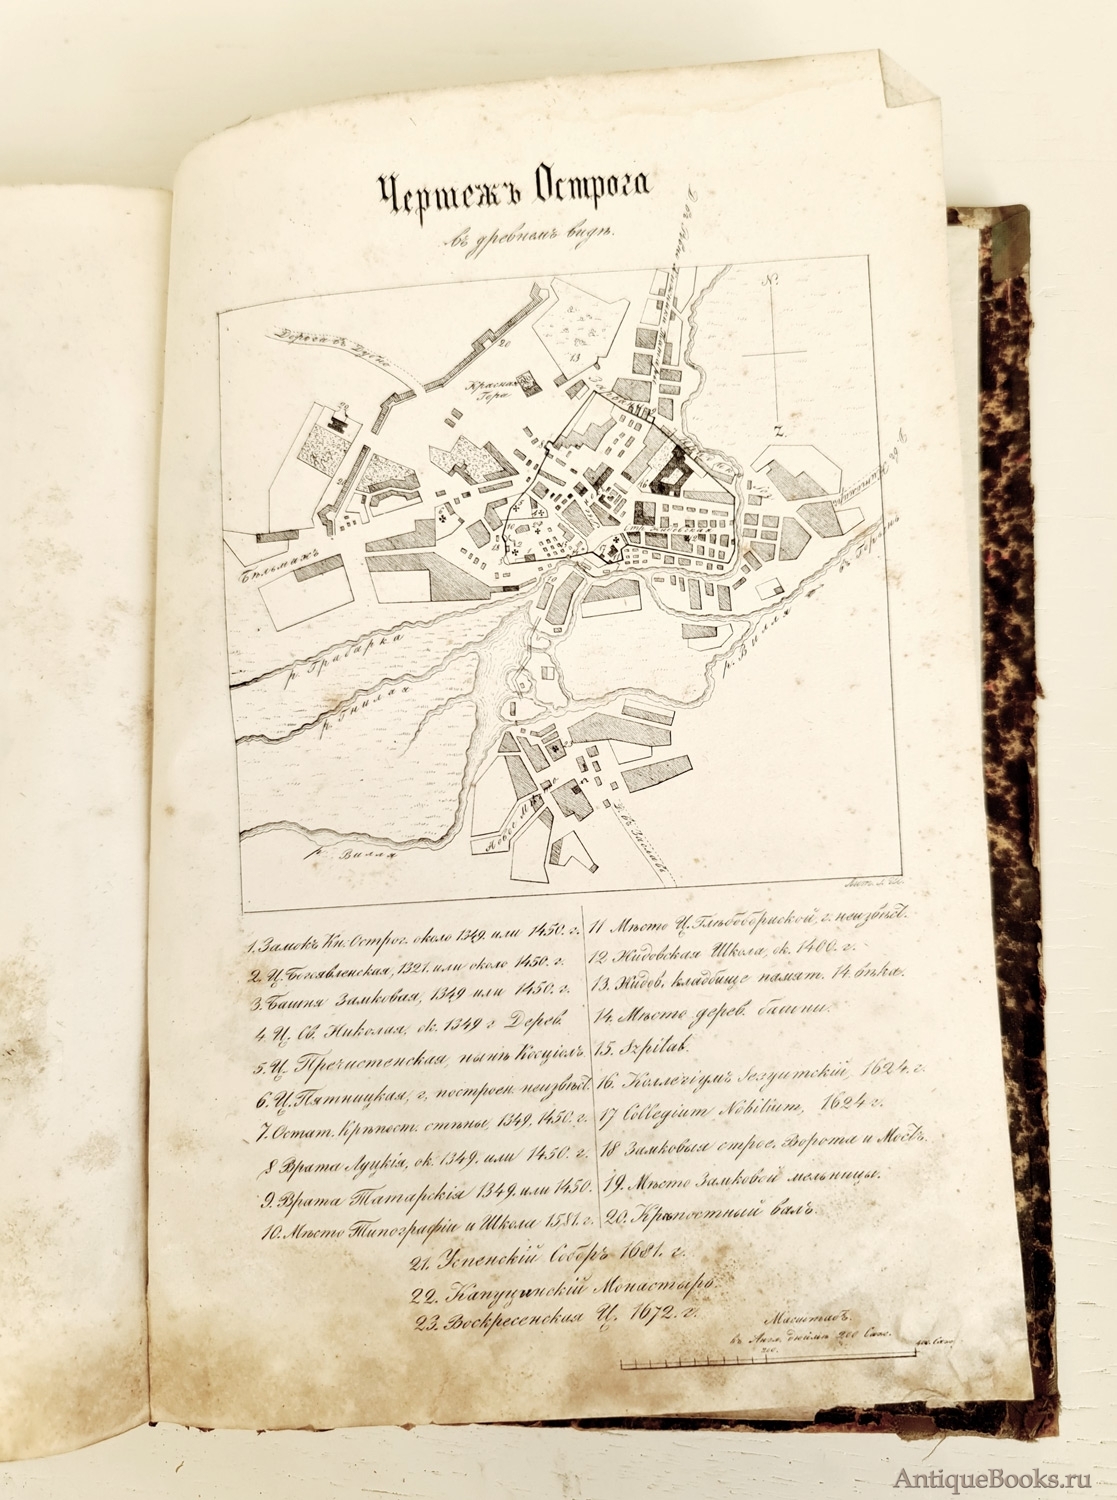 Чертежъ Острога
въ древнемъ видѣ.
N.
Z.
Дорога въ Дубно
20
13
Красная
Гора
20
Бѣльмажъ
Стр. Жидовская
р. Грабарка
р. Гнилая
р. Вилля
р. Вилля
въ Горынь
Новое М
Д. въ Заславъ
1. Замокъ Кн. Острог. около 1349. или 1450. г.
2. Ц. Богоявленская, 1321. или около 1450. г.
3. Башня Замковая, 1349 или 1450. г.
4. Ц. Св. Николая, ок. 1349 г Дерев.
5. Ц. Пречистенская, нынѣ Косціолъ.
6. Ц. Пятницкая, г. построен. неизвѣст.
7. Остат. Крѣпост. стѣны, 1349, 1450. г.
8 Врата Луцкія, ок. 1349. или 1450. г.
9. Врата Татарскія 1349. или 1450.
10. Мѣсто Типографіи и Школа 1581. г.
11 Мѣсто Ц. Глѣбобориской, г. неизвѣст.
12. Жидовская Школа, ок. 1400. г.
13. Жидов. кладбище памят. 14. вѣка.
14. Мѣсто дерев. башни.
15. Szpital.
16. Коллегіумъ Іезуитскій, 1624. г.
17 Collegium Nobilium, 1624 г.
18 Замковыя строе. Ворота и Мостъ.
19. Мѣсто Замковой мельницы.
20. Крѣпостный валъ.
21. Успенскій Соборъ 1681. г.
22. Капуцинскій Монастырь.
23. Воскресенская Ц. 1672. г.
Масштабъ.
въ Англ. дюймѣ 200 Саж.
200.
400. Саж.
AntiqueBooks.ru